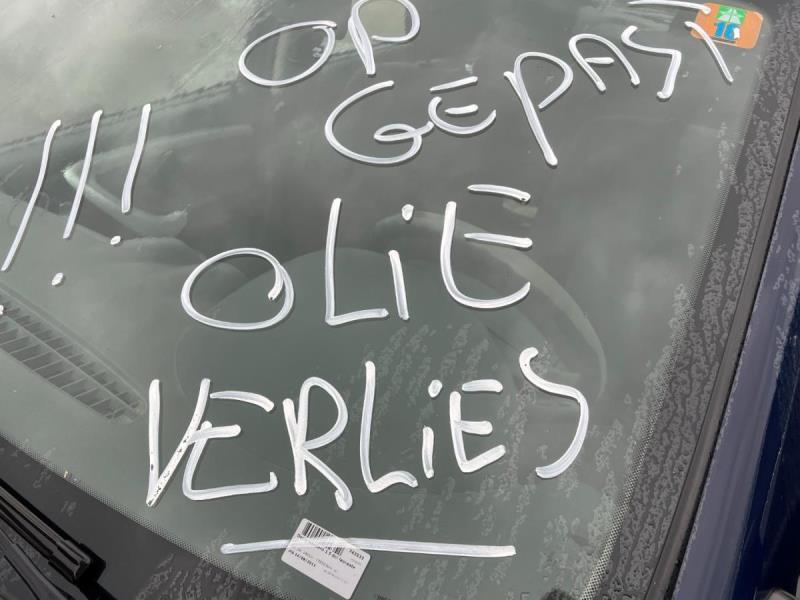 OP
GEPAST
!!!
OLiE
VERLiES
16